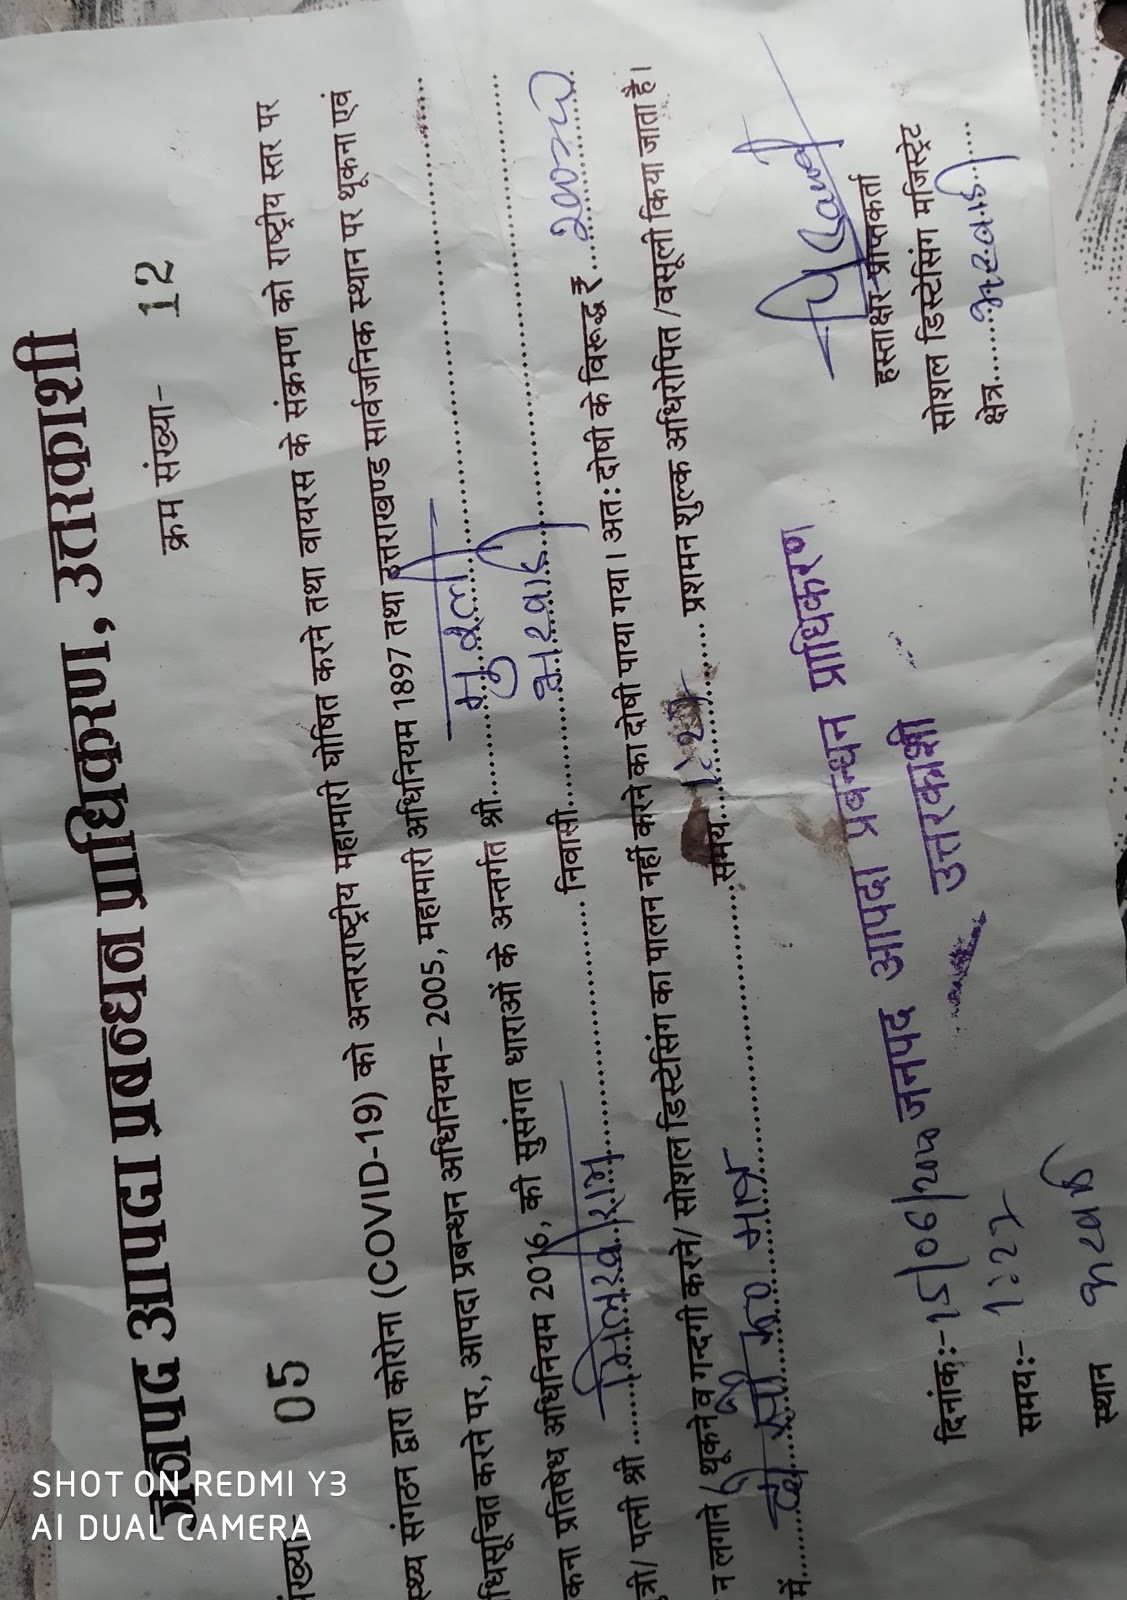 जनपद आपदा प्रबन्धन प्राधिकरण, उत्तरकाशी
ंख्या- 05 क्रम संख्या- 12
स्थ्य संगठन द्वारा कोरोना (COVID-19) को अन्तरराष्ट्रीय महामारी घोषित करने तथा वायरस के संक्रमण को राष्ट्रीय स्तर पर
धिसूचित करने पर, आपदा प्रबन्धन अधिनियम- 2005, महामारी अधिनियम 1897 तथा उत्तराखण्ड सार्वजनिक स्थान पर थूकना एवं
कना प्रतिषेध अधिनियम 2016, की सुसंगत धाराओं के अन्तर्गत श्री
त्री/ पत्नी श्री राम निवासी
न लगाने / थूकने व गन्दगी करने/ सोशल डिस्टेसिंग का पालन नहीं करने का दोषी पाया गया। अतः दोषी के विरूद्ध ₹
में समय प्रशमन शुल्क अधिरोपित /वसूली किया जाता है।
हस्ताक्षर प्राप्तकर्ता
सोशल डिस्टेसिंग मजिस्ट्रेट
क्षेत्र
जनपद आपदा प्रबन्धन प्राधिकरण
उत्तरकाशी
दिनांक:- 15/06/
समय:-
स्थान
SHOT ON REDMI Y3
AI DUAL CAMERA